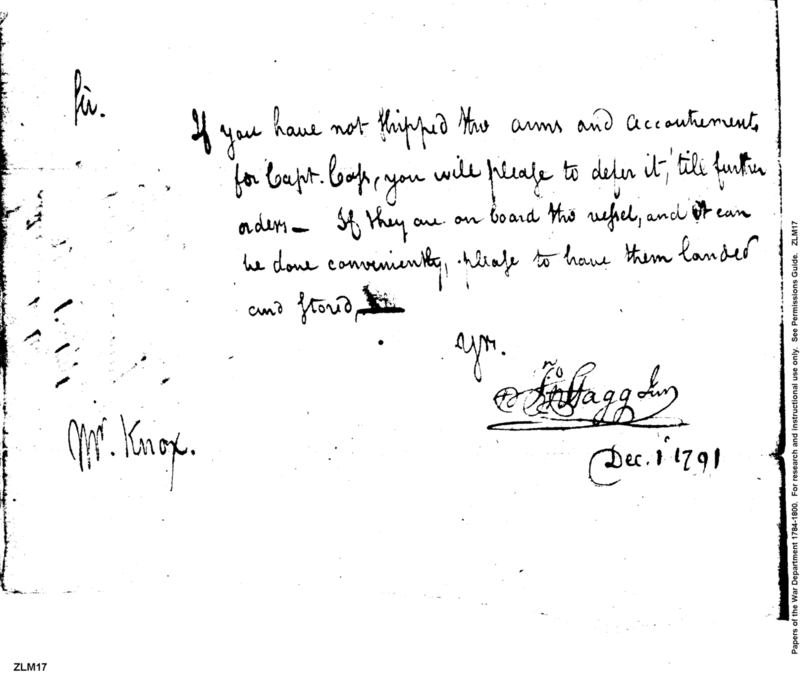 Sir.
If you have not shipped the arms and accoutrements
for Capt. Cass, you will please to defer it, 'till further
orders — If they are on board the vessel, and it can
be done conveniently, please to have them landed
and stored
Yrs.
Jno Stagg Junr
Dec. 1 1791
Mr. Knox.
Papers of the War Department 1784-1800. For research and instructional use only. See Permissions Guide. ZLM17
ZLM17